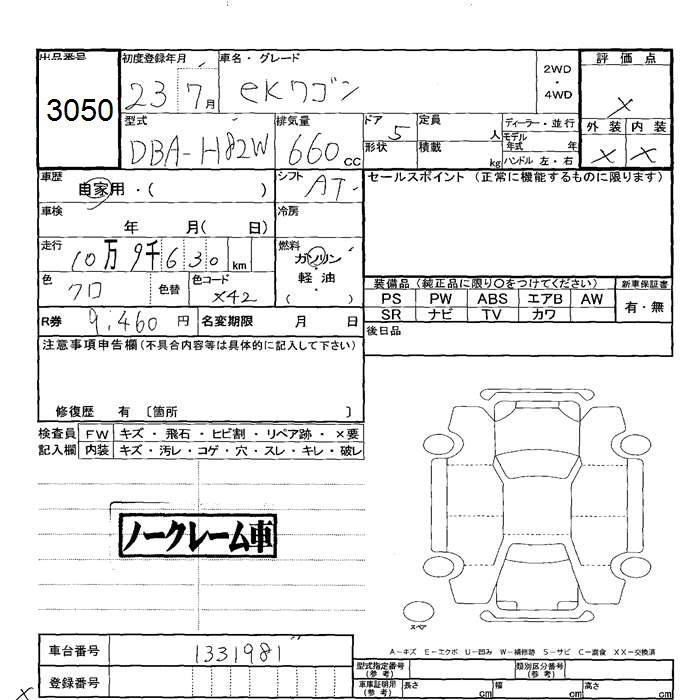 出品番号 初度登録年月 車名・グレード 2WD・4WD 評価点
3050 23 7月 eKワゴン X
型式 排気量 ドア 定員 人 ディーラー・並行 外装 内装
DBA-H82W 660cc 5 形状 積載 kg モデル年式 年 ハンドル 左・右 X X
車歴 自家用・( ) シフト AT セールスポイント (正常に機能するものに限ります)
車検 年 月( 日) 冷房
走行 10万9千630km 燃料 ガソリン・軽油・( )
色 クロ 色替 色コード X42 装備品 (純正品に限り○をつけてください) 新車保証書
PS PW ABS エアB AW 有・無
SR ナビ TV カワ
R券 9,460円 名変期限 月 日 後日品
注意事項申告欄(不具合内容等は具体的に記入して下さい)
修復歴 有 〔箇所 〕
検査員記入欄 FW キズ・飛石・ヒビ割・リペア跡・×要
内装 キズ・汚レ・コゲ・穴・スレ・キレ・破レ
ノークレーム車
スペア
A-キズ E-エクボ U-凹み W-補修跡 S-サビ C-腐食 XX-交換済
車台番号 1331981
型式指定番号(参考) 類別区分番号(参考)
登録番号 車庫証明用(参考) 長さ cm 幅 cm 高さ cm
X